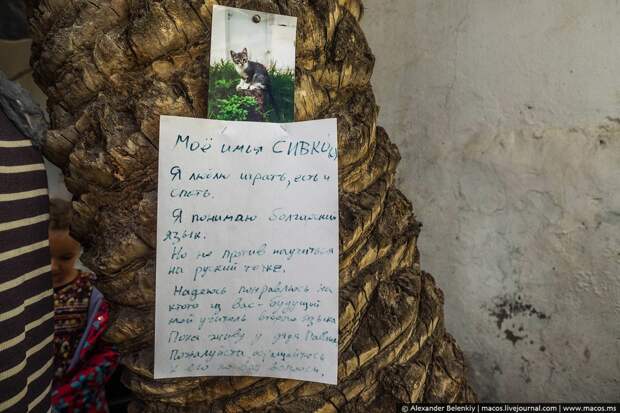 Моё имья СИВКО
Я люблю играть, есть и
спать.
Я понимаю болгарский
язык.
Но не против научиться
на руский тоже.
Надеюсь понравлюсь
ктото из вас - будущий
мой учитель второво языка
Пока живу у дядя Павла
Пожалуйста обращайтесь
к его по
© Alexander Belenkiy | macos.livejournal.com | www.macos.ms